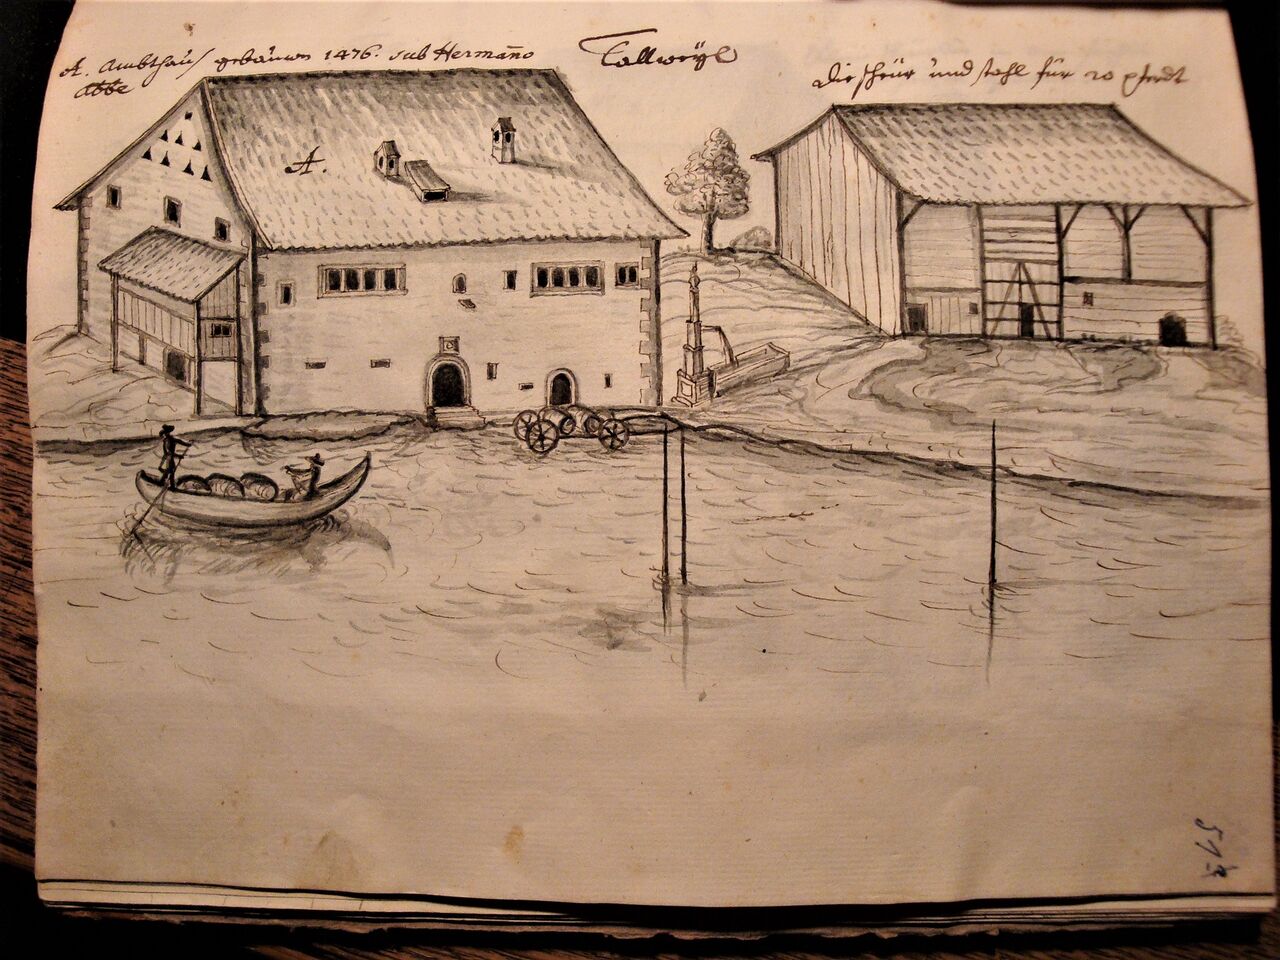 A. Ambthauß gebauwn 1476. sub Hermaño
Abbe
Tallweÿl
Die scheür und stahl für 20 pferdt
A.